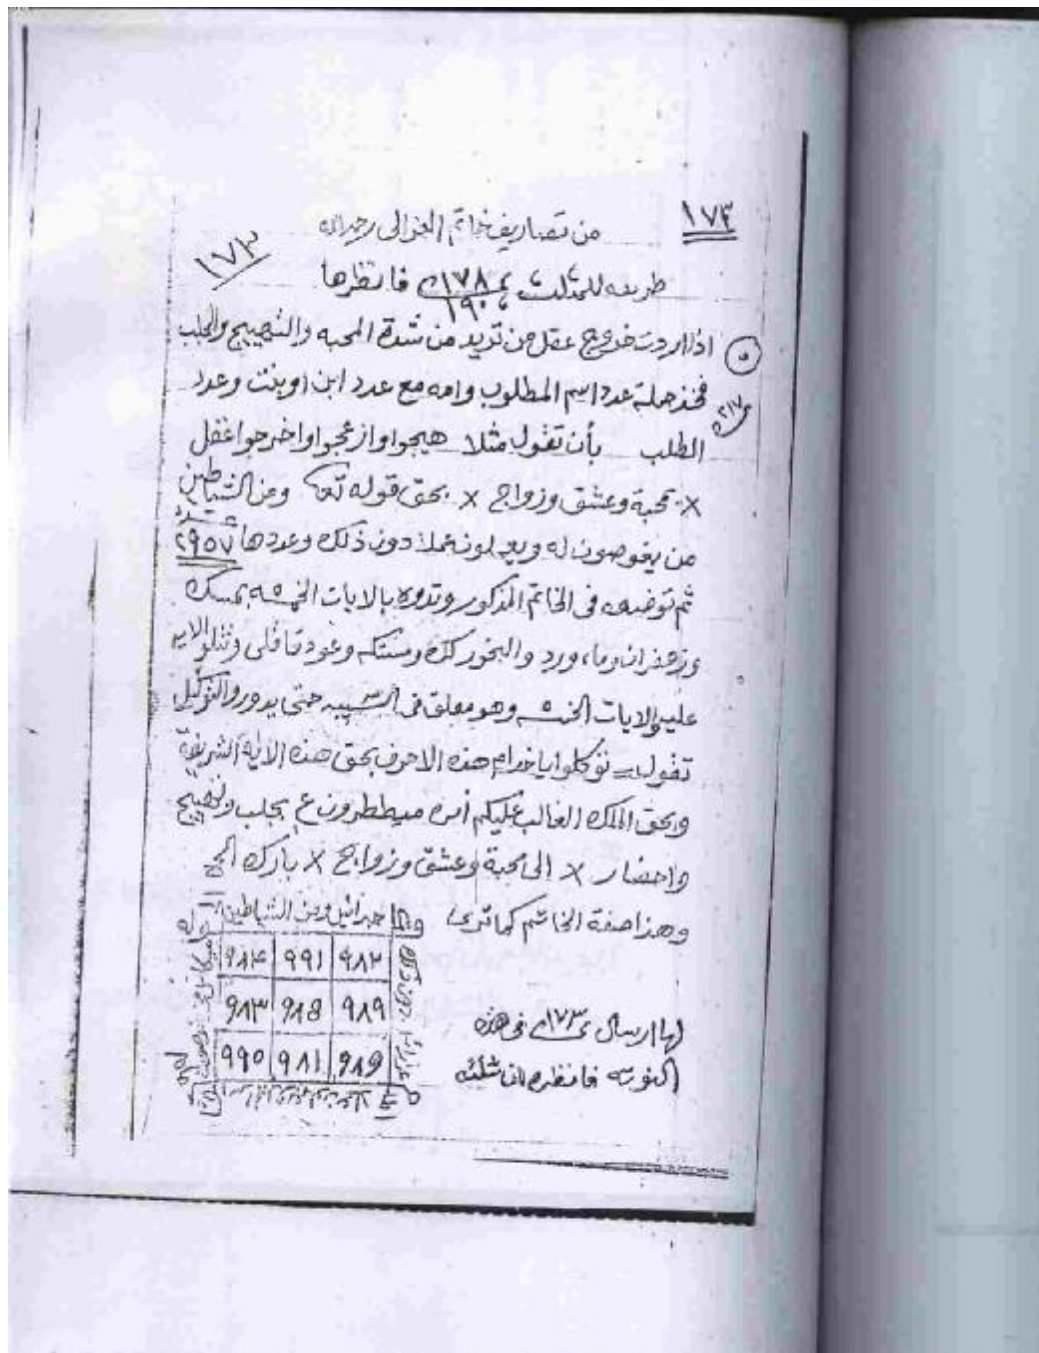 ١٧٣
من تصاريف خاتم الغزالى رحمه الله
١٧٣
طريقه للمثلث ١٧٨ ١٩٠ فانظرها
اذا اردت خروج عقل من تريد من شدة المحبه والتهييج والجلب
فخذ جملة عدد اسم المطلوب وامه مع عدد ابن او بنت وعدد
٢١٧
الطلب بأن تقول مثلا هيجوا وازعجوا واخرجوا عقل
× بمحبة وعشق وزواج × بحق قوله تعا ومن الشياطين
من يغوصون له ويعملون عملا دون ذلك وعددها ٢٩٥٧
ثم توضعه فى الخاتم المذكور وتدوره بالايات الخمسه بمسك
وزعفران وماء ورد والبخور لك ومستكه وعود قاقلى وتتلو الايه
عليه والايات الخمسه وهو معلق فى السيبه حتى يدور والتوكيل
تقول توكلوا يا خدام هذه الاحرف بحق هذه الاية الشريفة
وبحق الملك الغالب عليكم أمره ميططرون ع بجلب وتهييج
واحضار × الى محبة وعشق وزواج × بارك
وهذا صفة الخاتم كما ترى
جبرائيل ومن الشياطين
٩٨٤ ٩٩١ ٩٨٢
٩٨٣ ٩٨٥ ٩٨٩
٩٩٠ ٩٨١ ٩٨٩
دون ذلك
لها ارسال ١٧٣ فى هذه
النوته فانظره ان شئت